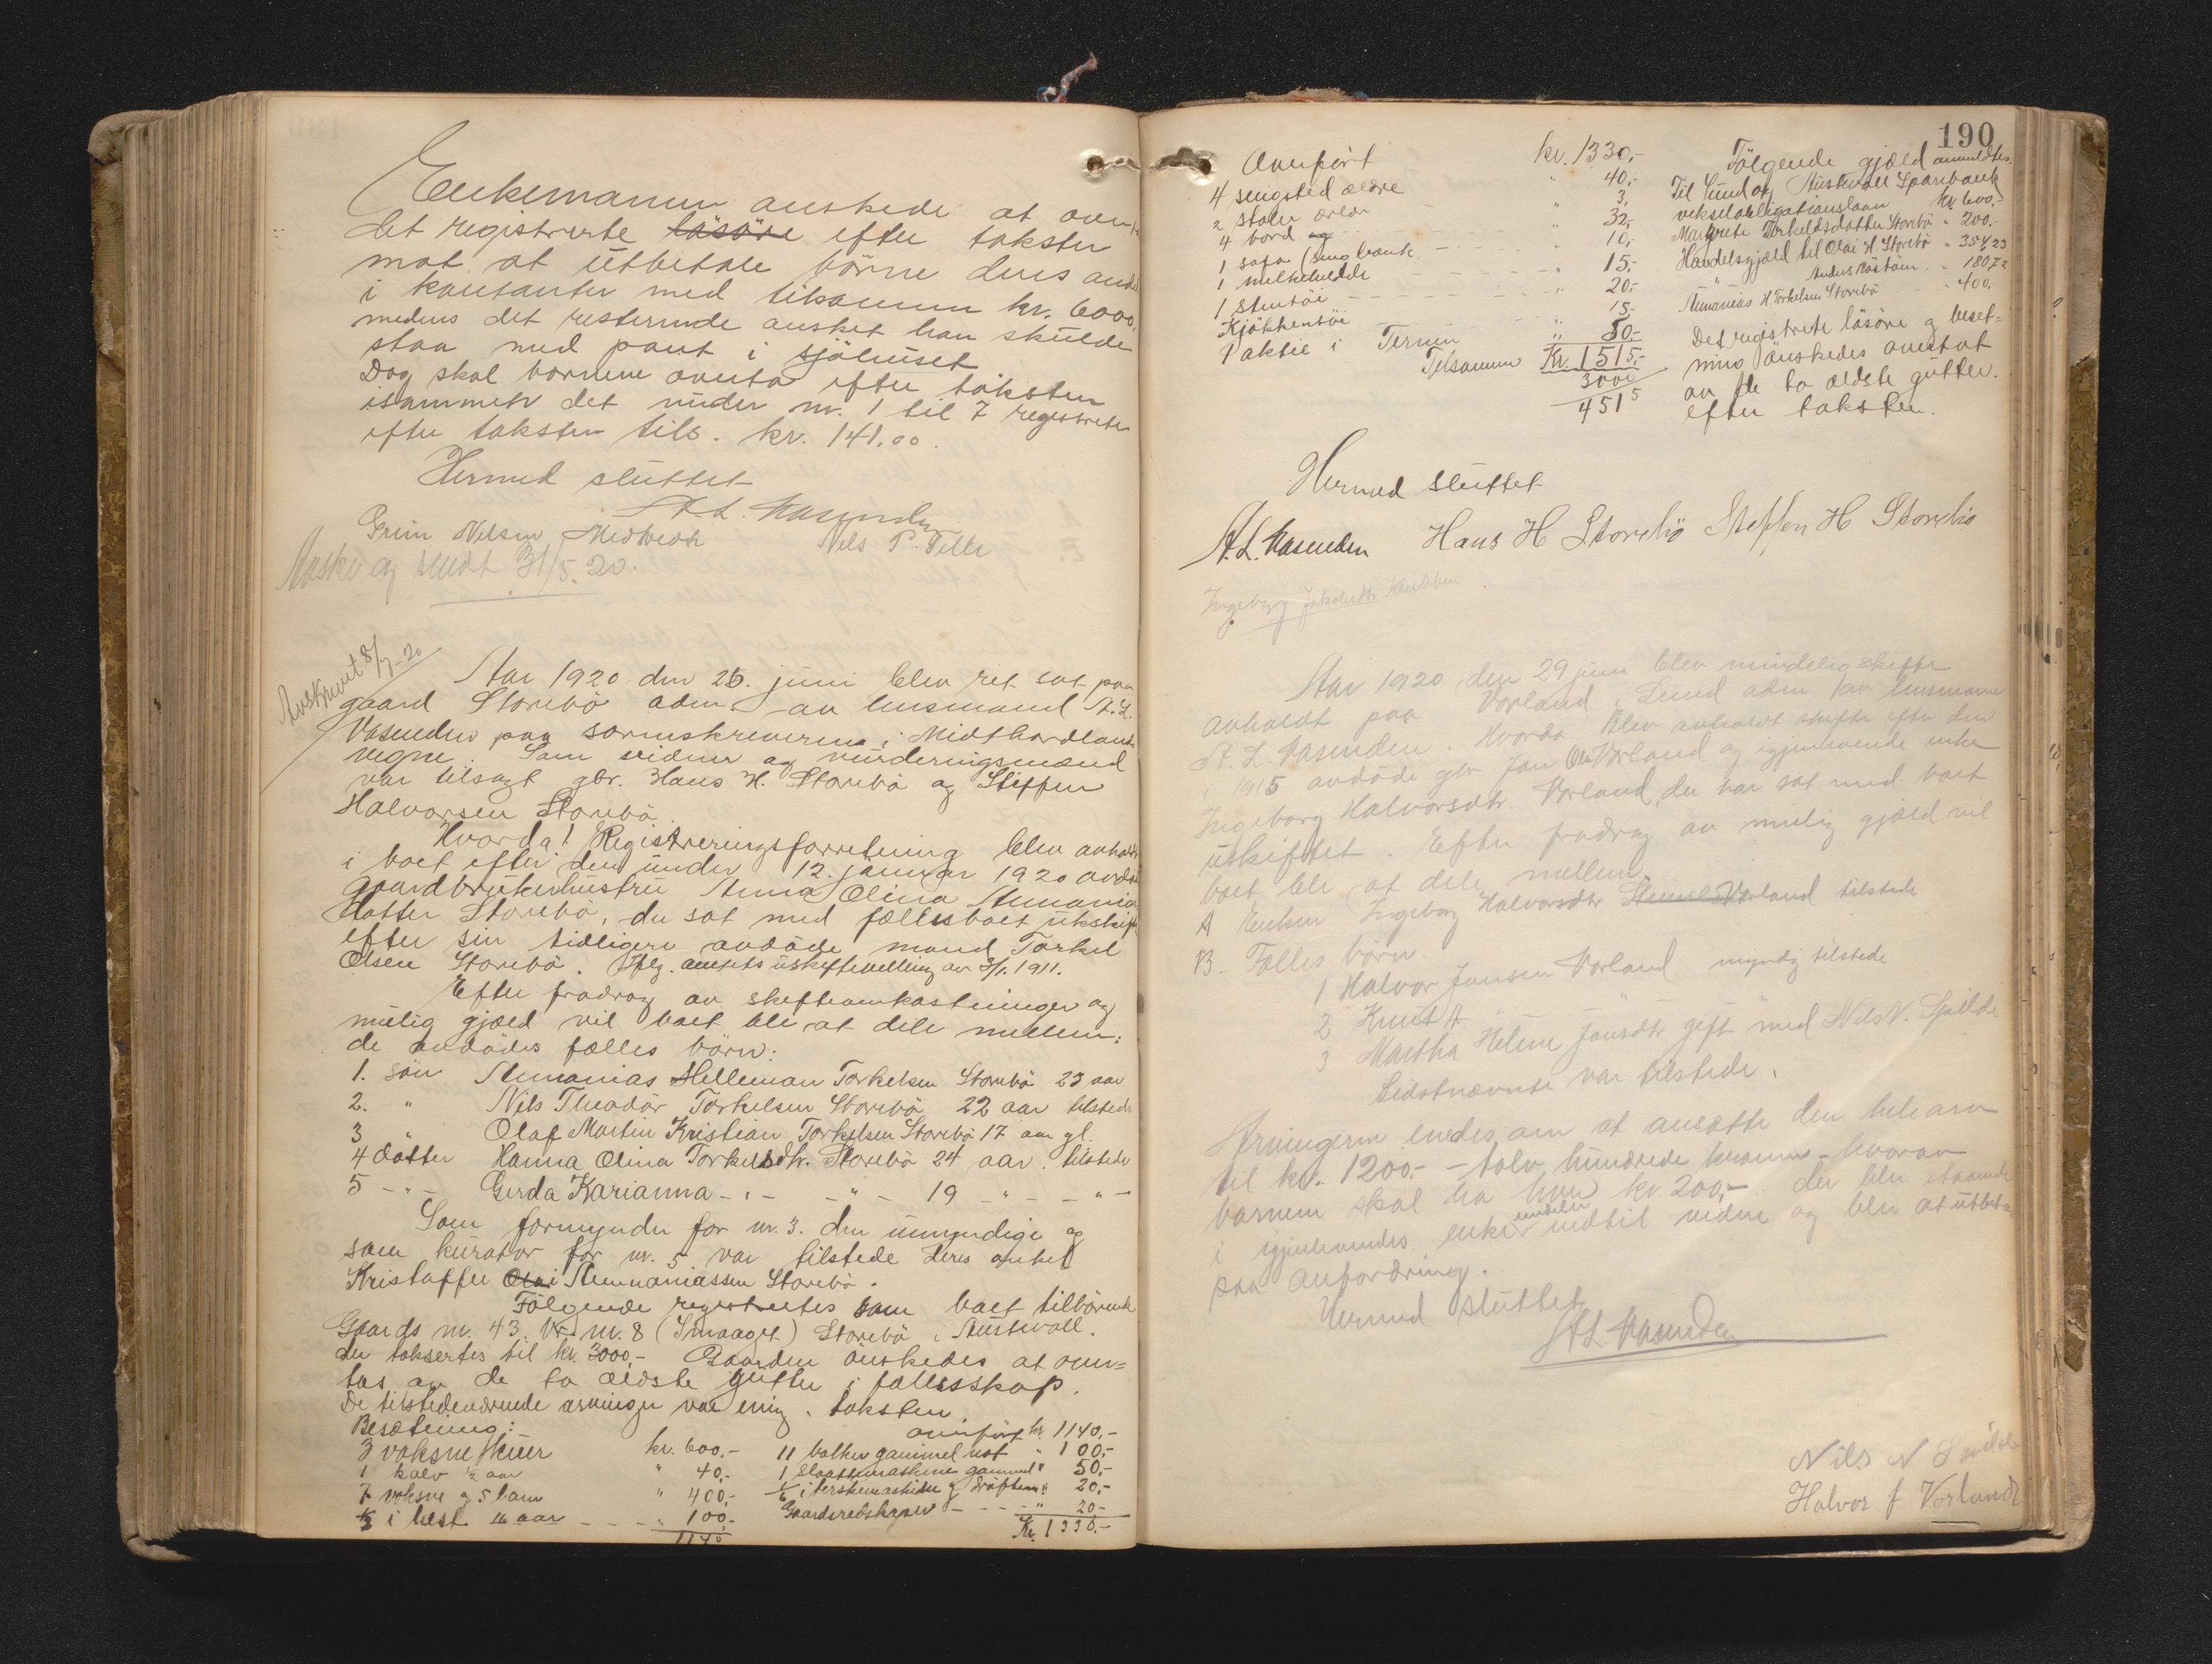 Enkemanden ønskede at overta
det registrerte løsøre efter taksten
mot at utbetale børne deres andel
i kontanter med tilsammen kr. 6000,
medens det resterende ønsket han skulde
staa med pant i sjøhuset
Dog skal børnene overta efter taksten
isammen det under nr. 1 til 7 registrerte
efter taksten tils. kr. 141.00.
Hermed sluttet
A. L. Vasenden
Grim Nilsen Midtvedt Nils P. Telle
Avskr og sendt 31/5. 20.
Avskrevet 8/7-20
Aar 1920 den 25. juni blev ret sat paa
gaard Storebø adm. av lensmand A. L.
Vasenden paa sorenskriveren i Midthordlands
vegne. Som vidner og vurderingsmænd
var tilsagt gbr. Hans H. Storebø og Steffen
Halvorsen Storebø.
Hvorda! Registreringsforretning blev avholdt
i boet efter den under 12. januar 1920 avdøde
gaardbrukerhustru Anna Olina Ananias
datter Storebø, der sat med fællesboet uskiftet
efter sin tidligere avdøde mand Torkel
Olsen Storebø. Iflg. amtets uskiftevilling av 3/1. 1911.
Efter fradrag av skifteomkostninger og
mulig gjæld vil boet bli at dele mellem:
de avdødes fælles børn:
1. søn Ananias Helleman Torkelsen Storebø 23 aar
2. " Nils Theodor Torkelsen Storebø 22 aar tilstede
3 " Olaf Martin Kristian Torkelsen Storebø 17 aar gl.
4 datter Hanna Olina Torkelsdtr. Storebø 24 aar. tilstede
5 -"- Gerda Karianna -"- -"- 19 -"- -"-
Som formynder for nr. 3. den umyndige og
som kurator for nr. 5 var tilstede deres onkel
Kristoffer Olai Ananiassen Storebø.
Følgende registrertes som boet tilhørende
Gaards nr. 43 br. nr. 8 (Smaaget) Storebø i Austevoll.
der taksertes til kr. 3000,- Gaarden ønskedes at over=
tas av de to ældste gutter i fællesskap.
De tilstedeværende arvinger var enig i taksten.
Besætning: overført kr. 1140,-
3 voksne kuer kr. 600.- 11 bolker gammel not " 100,-
1 kalv ½ aar " 40,- 1 slaattemaskine gammel " 50,-
7 voksne og 5 lam " 400,- 1/6 i treskemaskine og drøftem. " 20,-
1/3 i hest 16 aar - - - " 100,- Gaardsredskaper - - - " 20,-
1140 Kr. 1330.-
190
Overført kr. 1330,-
4 sengsted ældre " 40,-
2 stoler ældre " 3,
4 bord " 32,-
1 sofa (seng bænk - - " 10,-
1 melkehelde - - " 15,-
1 Stentøi - - " 20,-
Kjøkkentøi " 15-
1 aktie i Ternen " 50,-
Tilsammen Kr. 1515,-
3000
4515
Følgende gjæld anmeldtes.
Til Sund og Austevoll Sparebank
vekselobligationslaan kr. 600,-
Margrete Torkeldsdatter Storebø " 200.-
Handelsgjæld til Olai H. Storebø " 354 23
" Anders Røstøen " 180 72
Ananias H. Torkelsen Storebø " 400,
Det registrerte løsøre og beset=
ning ønskedes overtat
av de to ældste gutter.
efter taksten.
Hermed sluttet
A. L. Vasenden Hans H Storebø Steffen H Storebø
Ingeborg Jakobsdtr
Aar 1920 den 29 juni blev mindelig skifte
avholdt paa Vorland i Sund adm. av lensmann
A. L. Vasenden. Hvorda blev avholdt skifte efter den
i 1915 avdøde gbr Jan Vorland og igjenlevende enke
Ingeborg Halvorsdtr. Vorland, der har sat med boet
uskiftet. Efter fradrag av mulig gjæld vil
boet bli at dele mellem:
A Enken Ingeborg Halvorsdtr Vorland tilstede
B. Fælles børn.
1 Halvor Jansen Vorland myndig tilstede
2 Knut " " "
3 Martha Helene Jansdtr gift med Nils N. Spilde
Sidstnævnte var tilstede.
Arvingerne enedes om at ansætte den hele arv
til kr. 1200.- - tolv hundrede kroner - hvorav
barnene skal ha hver kr 200,- der blir staaende
i igjenlevendes enkes indtil videre og blir at utbetale
paa anfordring.
Hermed sluttet
A L Vasenden
Nils N Spilde
Halvor J Vorland